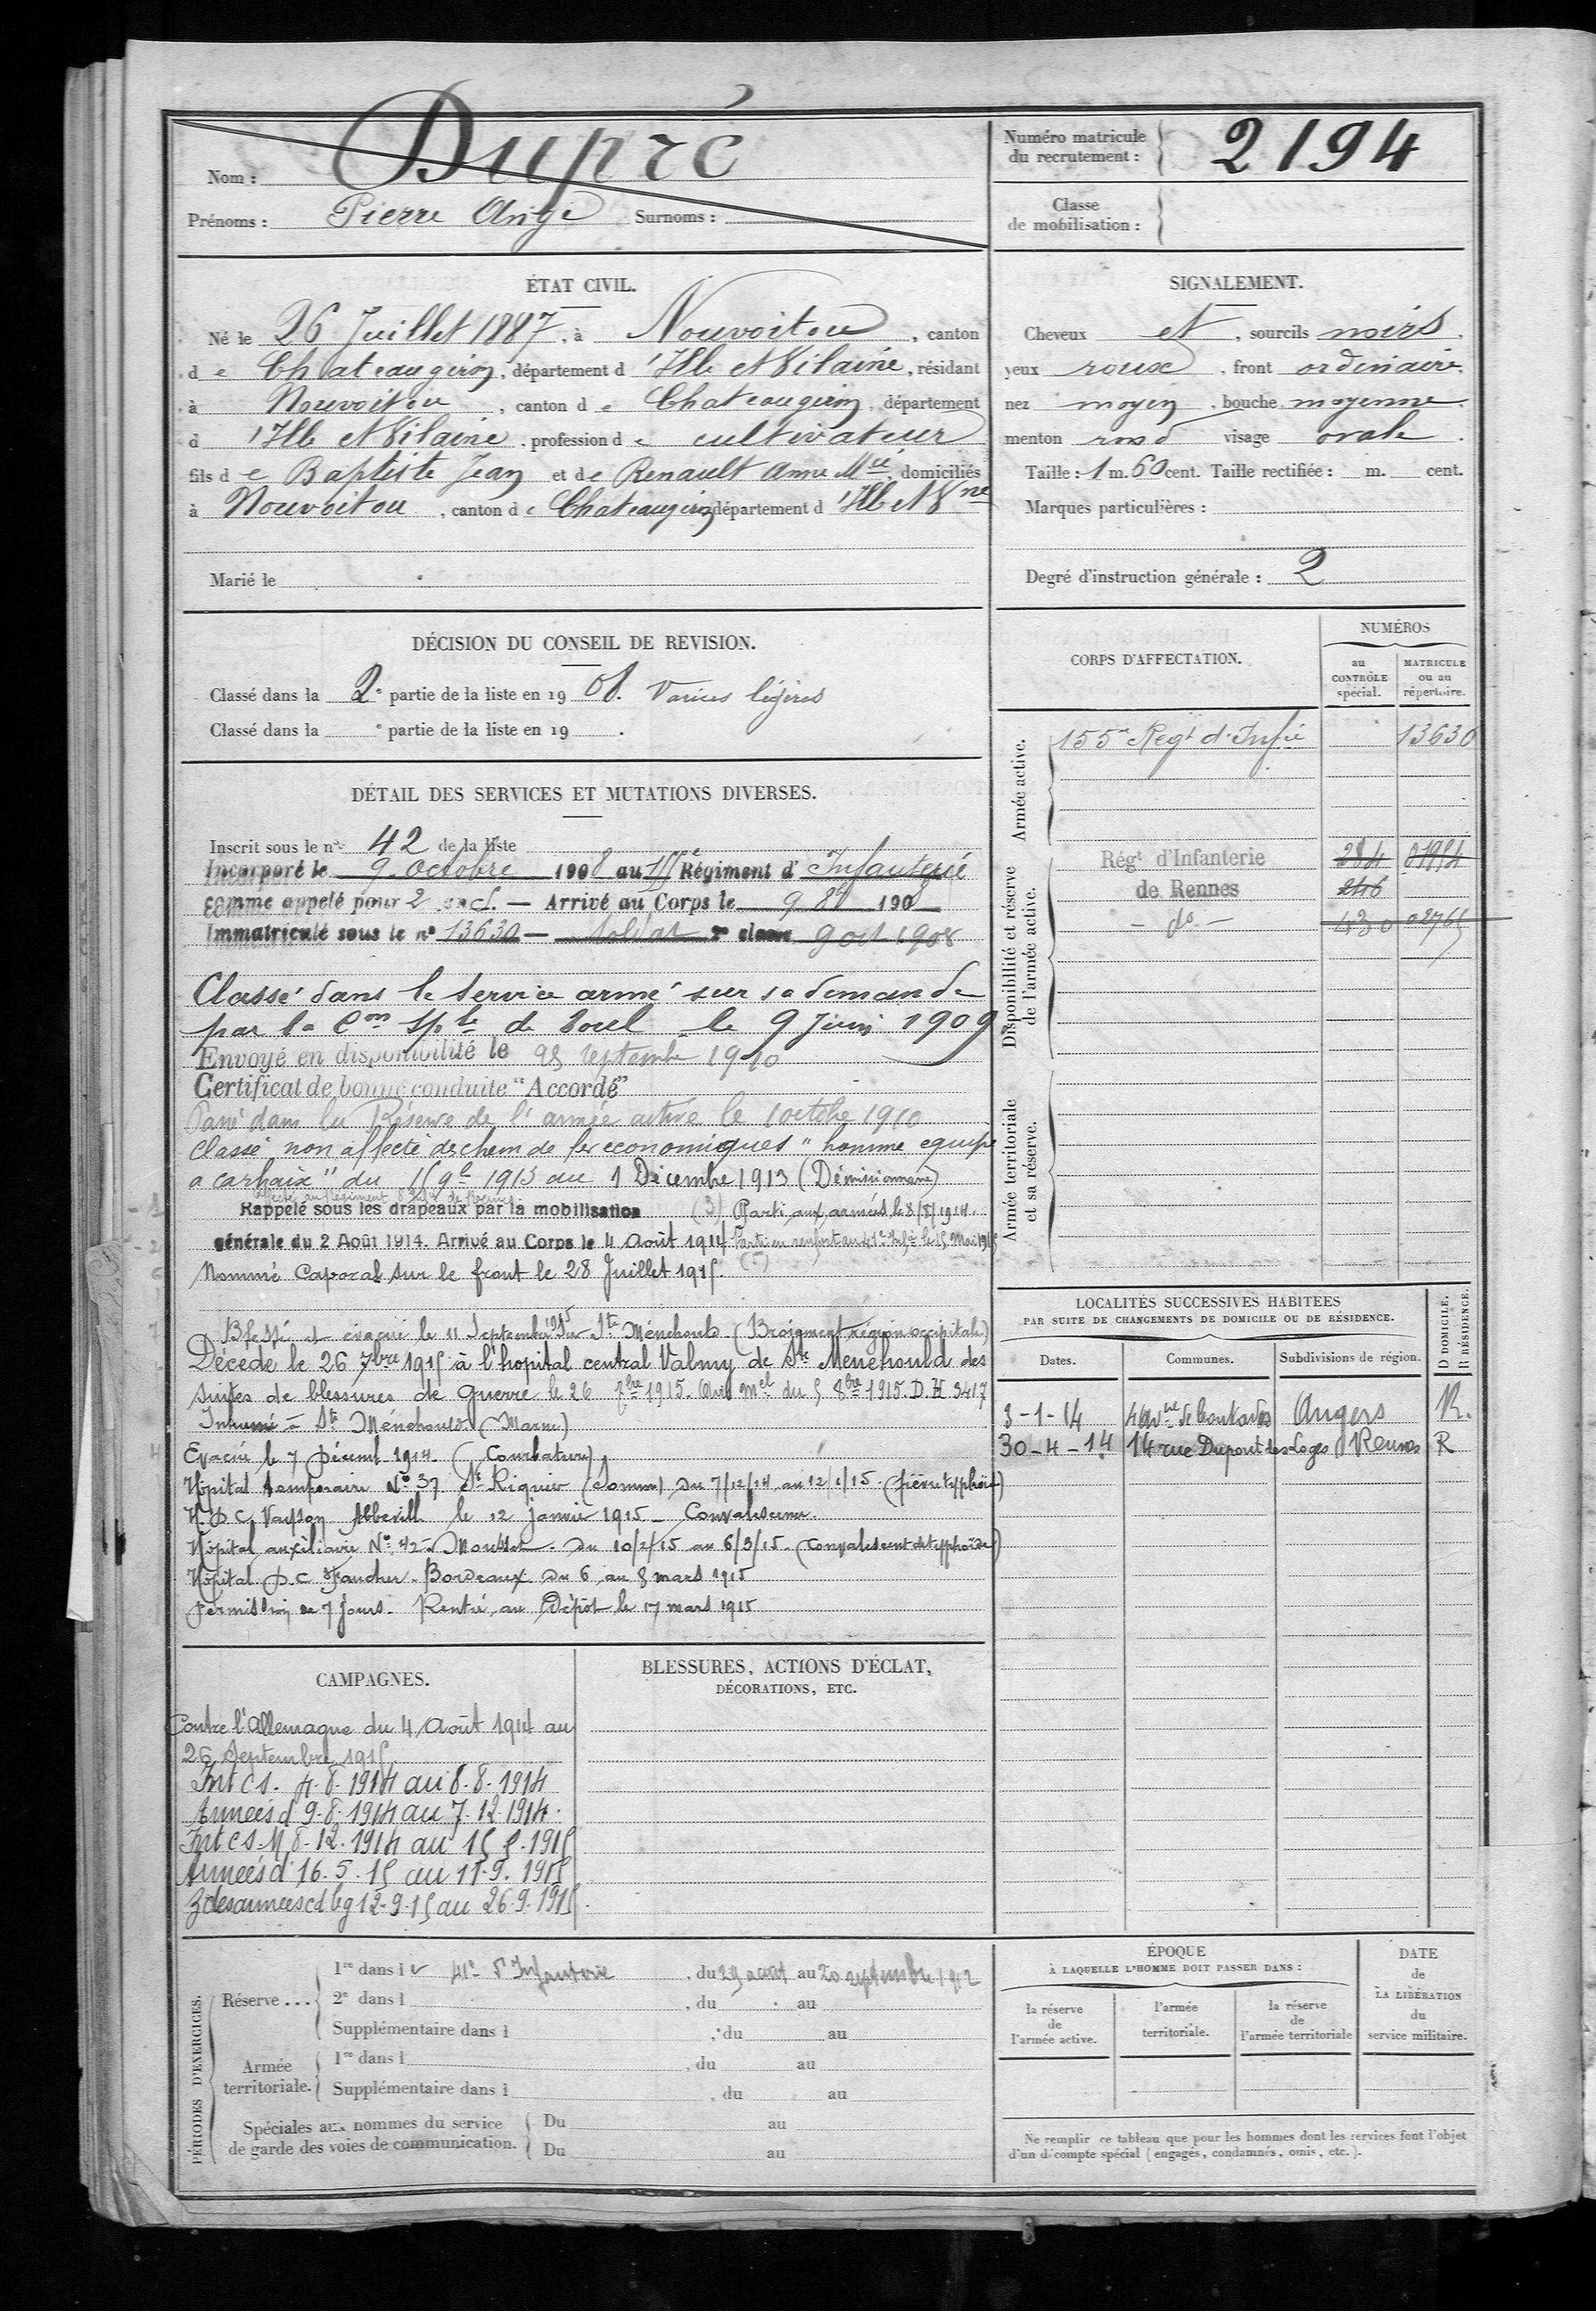 Nom : Dupré
Prénoms : Pierre Ange Surnoms :
Numéro matricule du recrutement : 2194
Classe de mobilisation :
ÉTAT CIVIL.
Né le 26 Juillet 1887, à Nouvoitou, canton
de Chateaugiron, département d'Ille et Vilaine, résidant
à Nouvoitou, canton de Chateaugiron, département
d'Ille et Vilaine, profession de cultivateur
fils de Baptiste Jean et de Renault Anne Mie domiciliés
à Nouvoitou, canton de Chateaugiron département d'Ille et Vne
Marié le
SIGNALEMENT.
Cheveux et, sourcils noirs.
yeux roux, front ordinaire,
nez moyen, bouche moyenne,
menton rond visage ovale.
Taille : 1 m. 60 cent. Taille rectifiée : m. cent.
Marques particulières :
Degré d'instruction générale : 2
DÉCISION DU CONSEIL DE REVISION.
Classé dans la 2e partie de la liste en 1908. Varices légères
Classé dans la e partie de la liste en 19 .
DÉTAIL DES SERVICES ET MUTATIONS DIVERSES.
Inscrit sous le n° 42 de la liste
Incorporé le 9 Octobre 1908 au 155e Régiment d'Infanterie
comme appelé pour 2 — Arrivé au Corps le 9 8bre 1908
Immatriculé sous le n° 13630 — soldat 2e classe 9 oct 1908
Classé dans le service armé sur sa demande
par la Con Sple de Toul le 9 Juin 1909
Envoyé en disponibilité le 25 septembre 1910
Certificat de bonne conduite "Accordé"
Passé dans la Réserve de l'armée active le 1 octobre 1910
Classé non affecté des chem de fer economiques "homme equipe
a carhaix" du 1913 au 1 Décembre 1913 (Démissionnaire)
Rappelé sous les drapeaux par la mobilisation (3) Parti aux armées le 8/8/1914.
générale du 2 Août 1914. Arrivé au Corps le 4 Août 1914 Parti en renfort au 41e Infie le 15 Mai 1915
Nommé Caporal sur le front le 28 Juillet 1915.
Blessé et évacué le 11 Septembre 1915 sur Ste Ménehould (Broiement région occipitale)
Décédé le 26 7bre 1915 à l'hopital central Valmy de Ste Menehould des
suites de blessures de Guerre le 26 7bre 1915. Avis Mel du 5 8bre 1915. D.H 3417
Inhumé à Ste Ménehould (Marne)
Evacué le 7 Décemb 1914. (Courbature)
Hôpital temporaire N° 37 St Riquier (Somme) Du 7/12/14 au 12/1/15. (fièvre typhoïde)
H. D. C. Vayson Abbeville le 12 janvier 1915 - Convalescence.
Hôpital auxiliaire N° 42 du 10/2/15 au 6/3/15. (Convalescent de typhoïde)
Hôpital D.C. Faucher. Bordeaux Du 6 au 8 mars 1915
Permission de 7 jours. Rentré au Dépôt le 17 mars 1915
CORPS D'AFFECTATION.
NUMÉROS
au CONTRÔLE spécial.
MATRICULE ou au répertoire.
Armée active.
155e Regt d'Infie 13630
Disponibilité et réserve de l'armée active.
Régt d'Infanterie 284 01954
de Rennes 246
- do - 430 02765
Armée territoriale et sa réserve.
LOCALITÉS SUCCESSIVES HABITÉES
PAR SUITE DE CHANGEMENTS DE DOMICILE OU DE RÉSIDENCE.
D DOMICILE. R RÉSIDENCE.
Dates. Communes. Subdivisions de région.
3-1-14 Angers R.
30-4-14 14 rue Dupont des Loges Rennes R
CAMPAGNES.
Contre l'Allemagne du 4 Août 1914 au
26 Septembre 1915
Int cs. 4.8.1914 au 8.8.1914
Armées d 9.8.1914 au 7.12.1914.
Int cs. M 8.12.1914 au 15 5.1915
Armées d 16.5.15 au 11.9.1915
Z des armées cd bg 12.9.15 au 26.9.1915.
BLESSURES, ACTIONS D'ÉCLAT,
DÉCORATIONS, ETC.
PÉRIODES D'EXERCICES.
Réserve ...
1re dans le 41e d'Infanterie, du 29 aout au 20 septembre 1912
2e dans l , du au
Supplémentaire dans l , du au
Armée territoriale.
1re dans l , du au
Supplémentaire dans l , du au
Spéciales aux hommes du service
de garde des voies de communication.
Du au
Du au
ÉPOQUE
À LAQUELLE L'HOMME DOIT PASSER DANS :
la réserve de l'armée active.
l'armée territoriale.
la réserve de l'armée territoriale
DATE de LA LIBÉRATION du service militaire.
Ne remplir ce tableau que pour les hommes dont les services font l'objet
d'un décompte spécial (engagés, condamnés, omis, etc.).